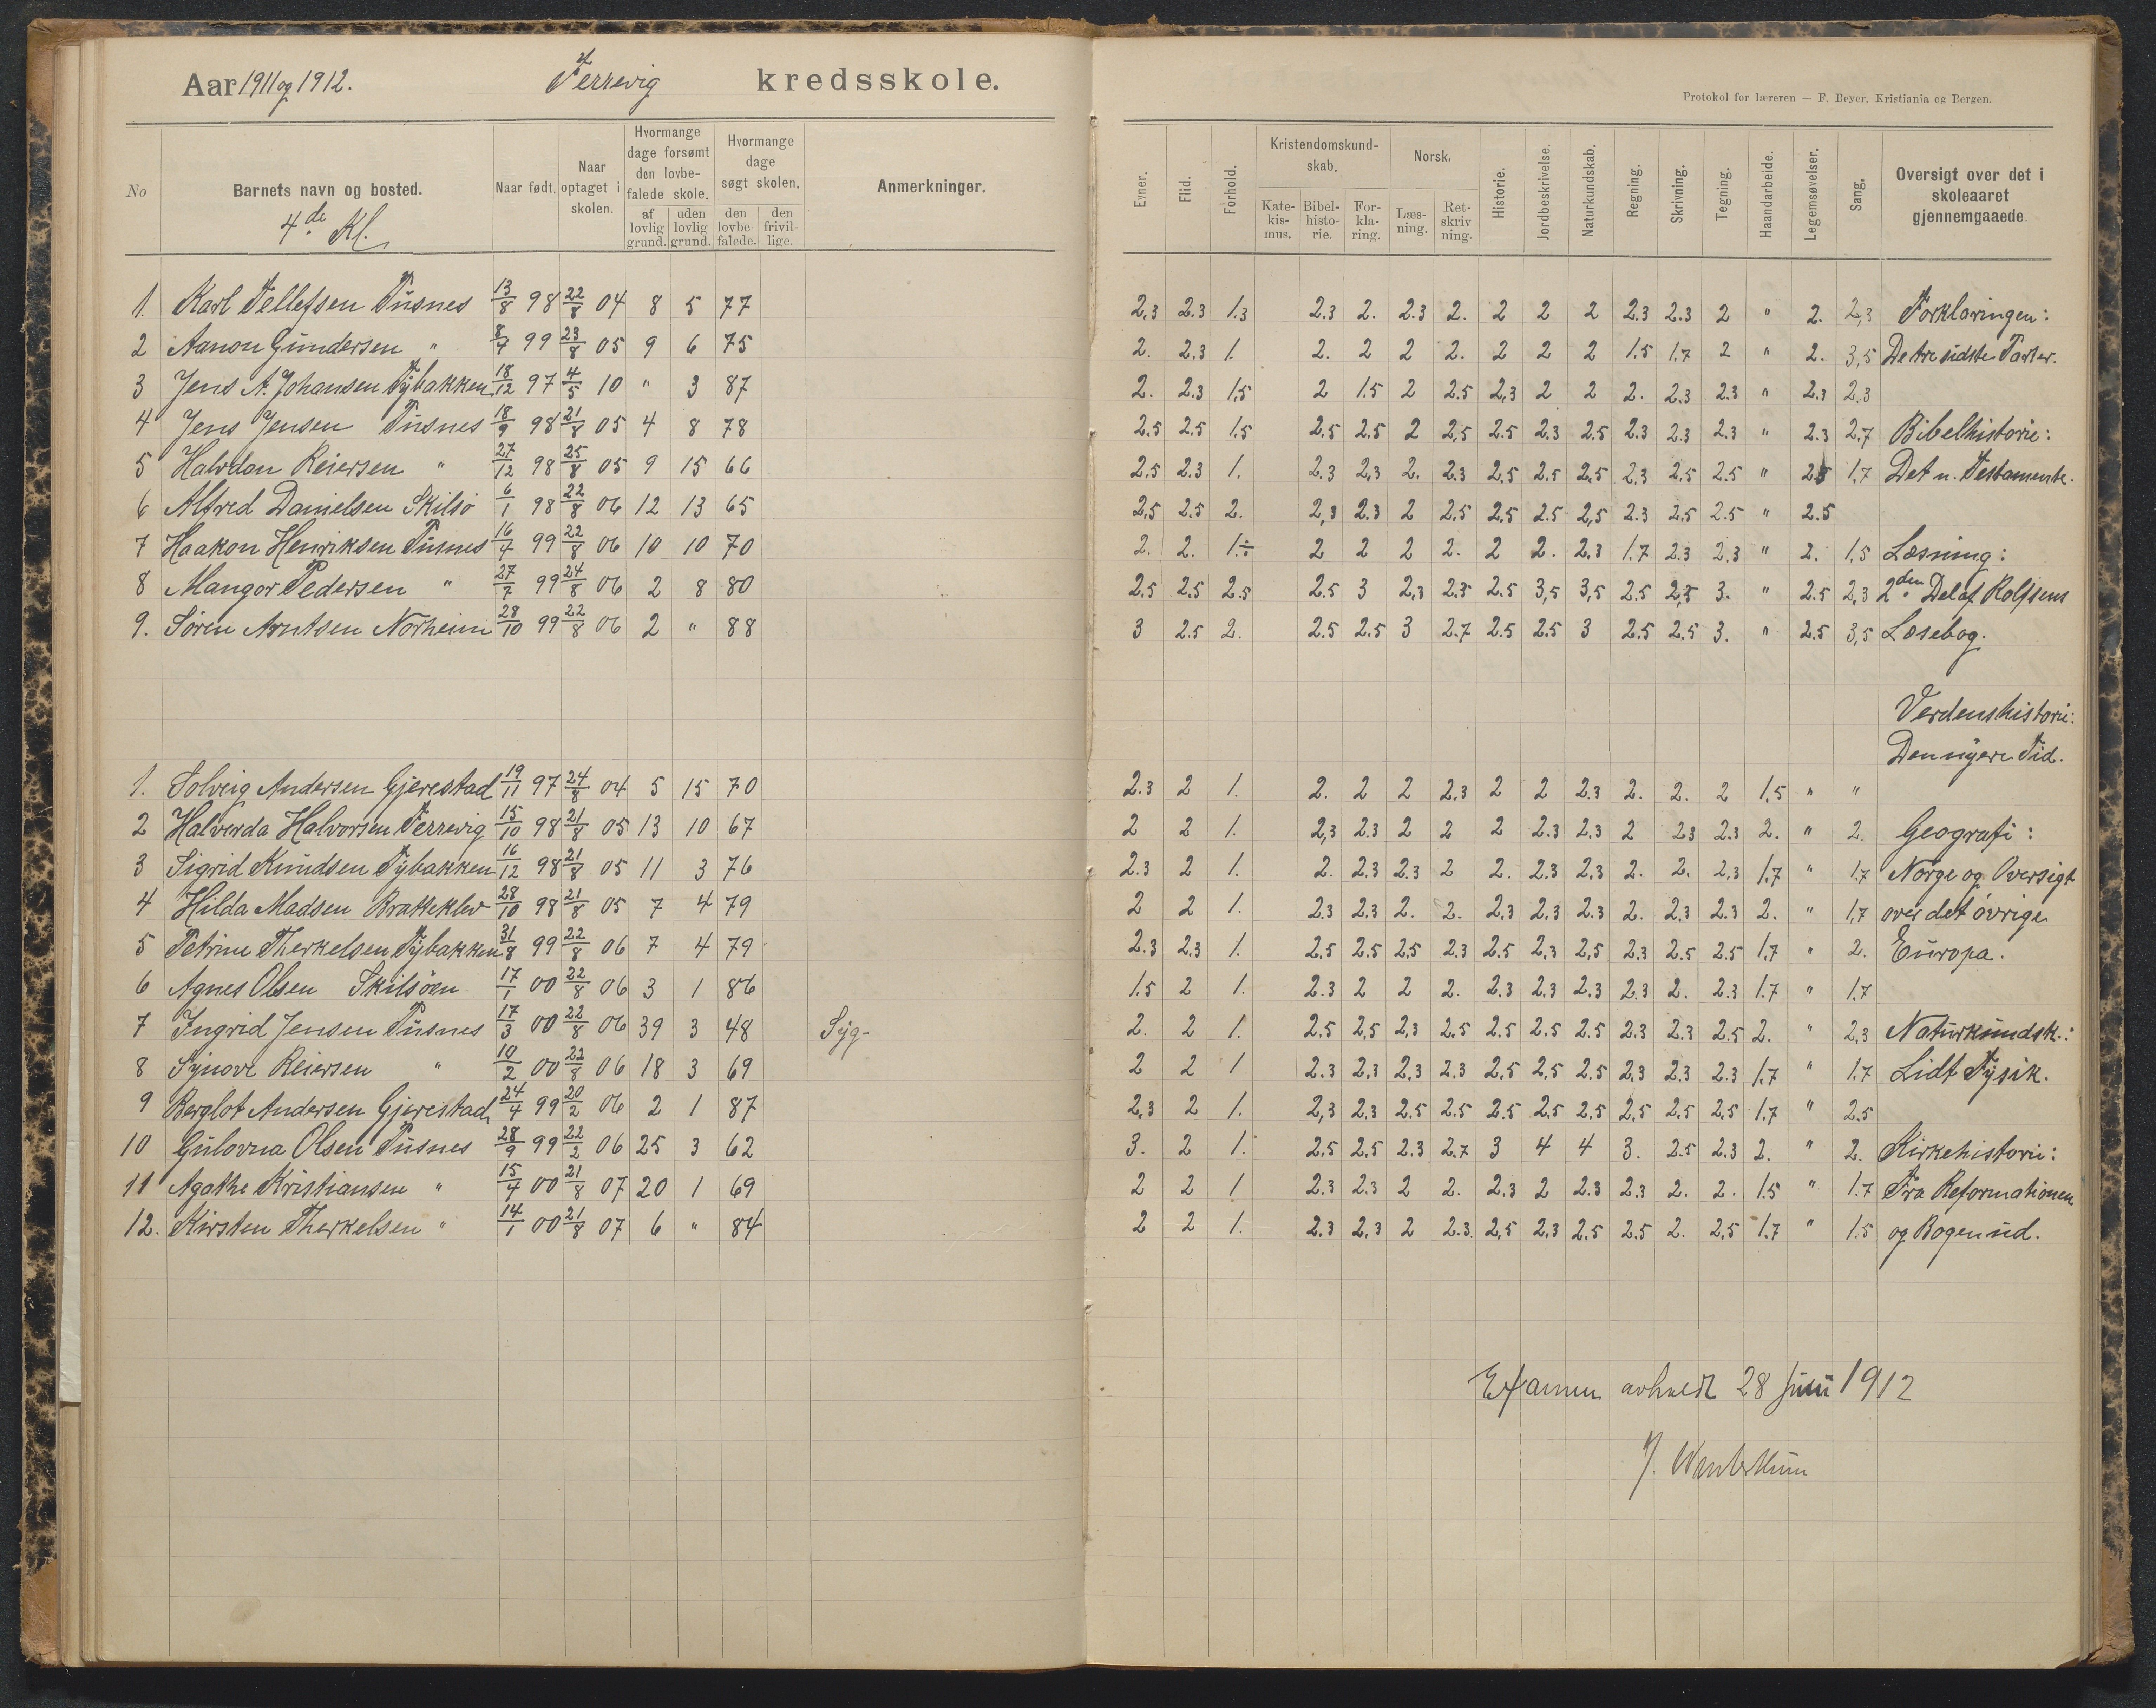 Aar 1911 og 1912. Terrevig kredsskole.
No
Barnets navn og bosted.
4de Kl.
Naar født.
Naar optaget i skolen.
Hvormange dage forsømt den lovbefalede skole.
af lovlig grund.
uden lovlig grund.
Hvormange dage søgt skolen.
den lovbefalede.
den frivillige.
Anmerkninger.
1. Karl Tellefsen Pusnes 13/8 98 22/8 04 8 5 77
2 Aanon Gundersen " 8/4 99 23/8 05 9 6 75
3 Jens A. Johansen Tybakken 18/12 97 4/5 10 " 3 87
4 Jens Jensen Pusnes 18/9 98 21/8 05 4 8 78
5 Halvdan Reiersen " 27/12 98 25/8 05 9 15 66
6 Alfred Danielsen Skilsö 6/1 98 22/8 06 12 13 65
7 Haakon Henriksen Pusnes 16/4 99 22/8 06 10 10 70
8 Mangor Pedersen " 27/7 99 24/8 06 2 8 80
9. Sören Arntsen Norheim 28/10 99 22/8 06 2 " 88
1. Solveig Andersen Gjerestad 19/11 97 24/8 04 5 15 70
2 Halverda Halvorsen Terrevig 15/10 98 21/8 05 13 10 67
3 Sigrid Knudsen Tybakken 16/12 98 21/8 05 11 3 76
4 Hilda Madsen Bratteklev 28/10 98 21/8 05 7 4 79
5 Petrine Therkelsen Tybakken 31/8 99 22/8 06 7 4 79
6 Agnes Olsen Skilsöen 17/1 00 22/8 06 3 1 86
7 Ingrid Jensen Pusnes 17/3 00 22/8 06 39 3 48 Syg-
8 Synove Reiersen " 10/2 00 22/8 06 18 3 69
9 Berglot Andersen Gjerestad 24/4 99 20/2 06 2 1 87
10 Gulovna Olsen Pusnes 28/9 99 22/2 06 25 3 62
11 Agathe Kristiansen " 15/4 00 21/8 07 20 1 69
12. Kirsten Therkelsen " 14/1 00 21/8 07 6 " 84
Protokol for læreren — F. Beyer, Kristiania og Bergen.
Evner.
Flid.
Forhold.
Kristendomskundskab.
Katekismus.
Bibelhistorie.
Forklaring.
Norsk.
Læsning.
Retskrivning.
Historie.
Jordbeskrivelse.
Naturkundskab.
Regning.
Skrivning.
Tegning.
Haandarbeide.
Legemsøvelser.
Sang.
Oversigt over det i skoleaaret gjennemgaaede.
2,3 2.3 1.3 2.3 2. 2.3 2. 2 2 2 2.3 2.3 2 " 2. 2,3 Forklaringen:
2. 2,3 1. 2. 2 2 2. 2 2 2 1.5 1.7 2 " 2. 3,5 De tre sidste Parter.
2. 2.3 1,5 2 1.5 2 2.5 2,3 2 2 2. 2.3 2.3 " 2.3 2,3
2.5 2.5 1.5 2,5 2.5 2 2,5 2.5 2.3 2.5 2.3 2.3 2.3 " 2.3 2,7 Bibelhistorie:
2,5 2.3 1. 2.3 2,3 2. 2.3 2,5 2.5 2,5 2,3 2,5 2.5 " 2.5 1,7 Det n. Testamente.
2,5 2.5 2. 2,3 2.3 2 2,5 2,5 2.5 2,5 2.3 2,5 2.5 " 2.5
2. 2. 1.÷ 2 2 2 2. 2 2. 2,3 1.7 2.3 2,3 " 2. 1,5 Læsning:
2,5 2.5 2.5 2.5 3 2,3 2.5 2.5 3,5 3,5 2.5 2,5 3. " 2.5 2,3 2den Del af Rolfsens
3 2.5 2. 2.5 2.5 3 2.7 2.5 2.5 3 2.5 2.5 3. " 2.5 3,5 Læsebog.
Verdenshistorie:
Den nyere Tid.
2.3 2 1. 2. 2 2 2,3 2 2 2.3 2. 2. 2 1,5 " "
2 2 1. 2,3 2.3 2 2 2 2.3 2,3 2 2.3 2.3 2. " 2. Geografi:
2.3 2 1. 2. 2.3 2.3 2 2. 2.3 2,3 2. 2. 2,3 1.7 " 1.7 Norge og Oversigt
2 2 1. 2.3 2,3 2. 2. 2,3 2.3 2.3 2. 2,3 2.3 2. " 1,7 over det övrige
2.3 2.3 1. 2,5 2.5 2,5 2.3 2.5 2,3 2,5 2.3 2.5 2.5 1.7 " 2. Europa.
1.5 2 1. 2.3 2 2 2. 2.3 2.3 2.3 2.3 2. 2.3 1.7 " 1.7
2. 2 1. 2.5 2,5 2,3 2.5 2.5 2.5 2.5 2.3 2.3 2.5 2. " 2,3 Naturkundsk.:
2 2 1 2.3 2,3 2,3 2.3 2,5 2,5 2.5 2,3 2.3 2.3 1.7 " 1.7 Lidt Fysik.
2,3 2 1. 2,3 2,3 2.5 2.5 2.5 2,5 2,5 2,5 2,5 2,5 1.7 " 2.5
3. 2 1. 2.5 2,5 2.3 2,7 3 4 4 3. 2.5 2.3 2. " 2. Kirkehistorie:
2 2 1 2.3 2.3 2 2. 2,3 2 2.3 2.3 2. 2. 1.5 " 1.7 Fra Reformationen
2 2 1. 2.3 2,3 2 2.3. 2,5 2.3 2.5 2.5 2. 2,5 1.7 " 1.5 og Bogen ud.
Examen avholdt 28 Juni 1912